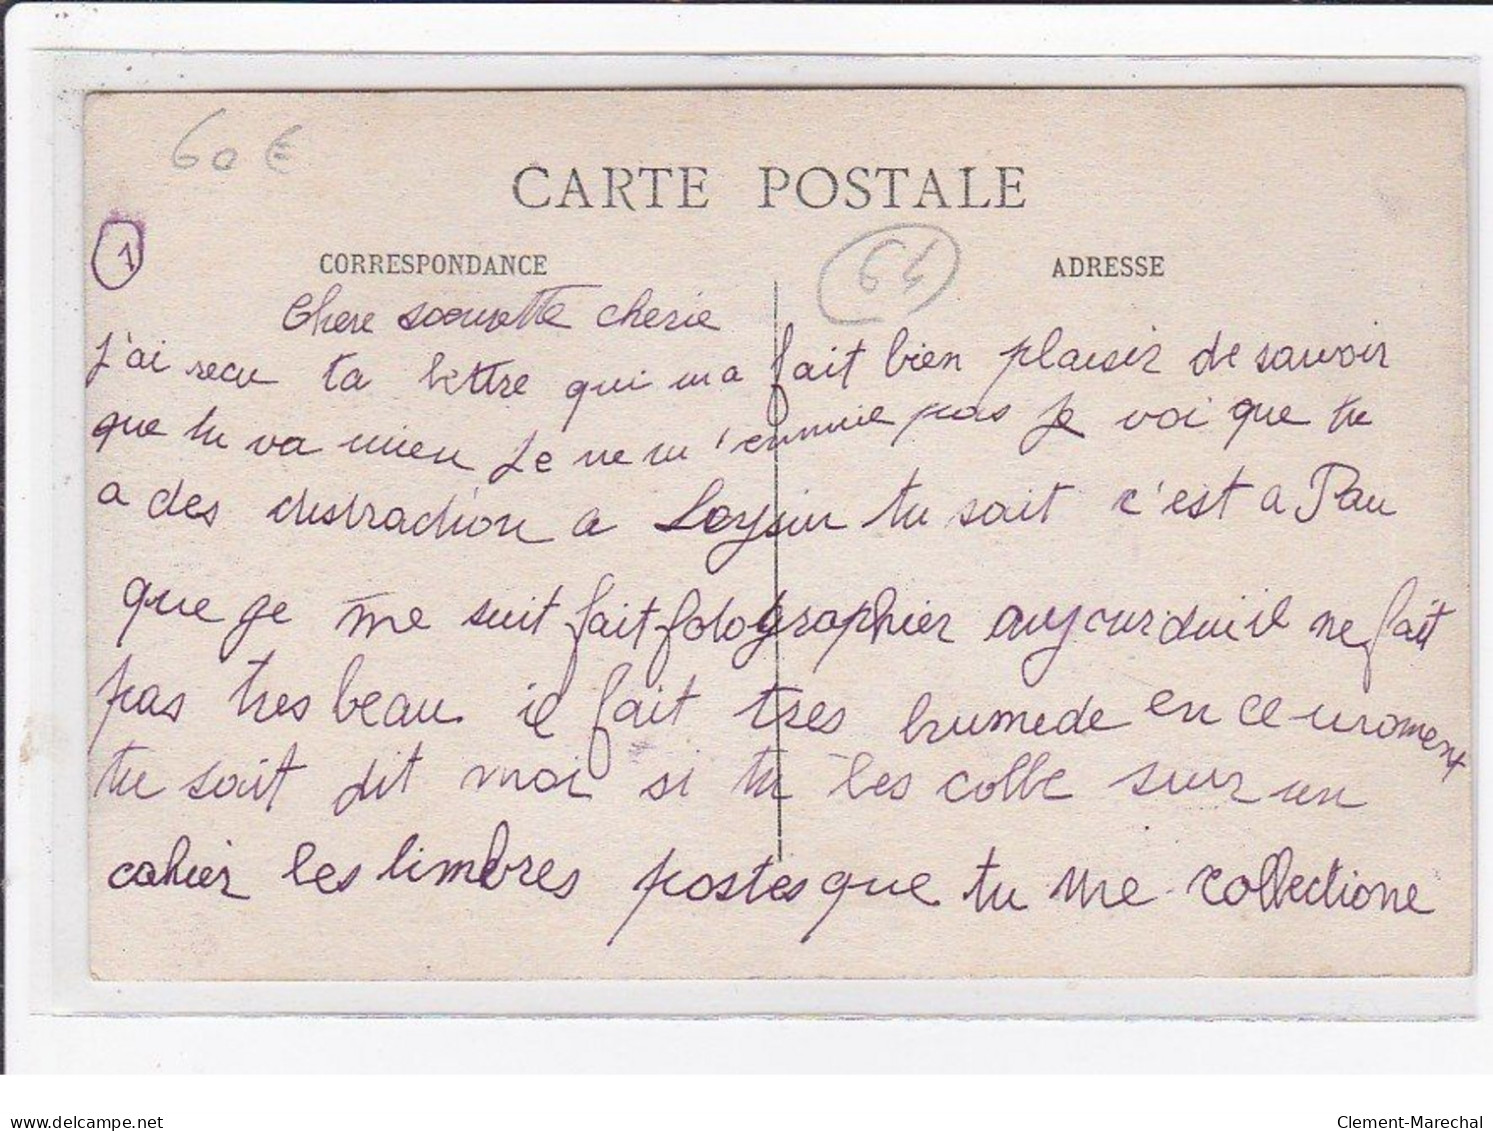 60 €
CARTE POSTALE
1
64
CORRESPONDANCE
ADRESSE
Chere soeurette cherie
j'ai recu ta lettre qui ma fait bien plaisir de savoir
que tu va mieu Je ne m'ennuie pas Je voi que tu
a des distraction a Leysin tu sait c'est a Pau
que je me suit fait fotographier aujourduiil ne fait
pas tres beau il fait tres humede en ce moment
tu sait dit moi si tu les colle sur un
cahier les timbres postes que tu me collectione
delcampe.net
Clement-Marechal